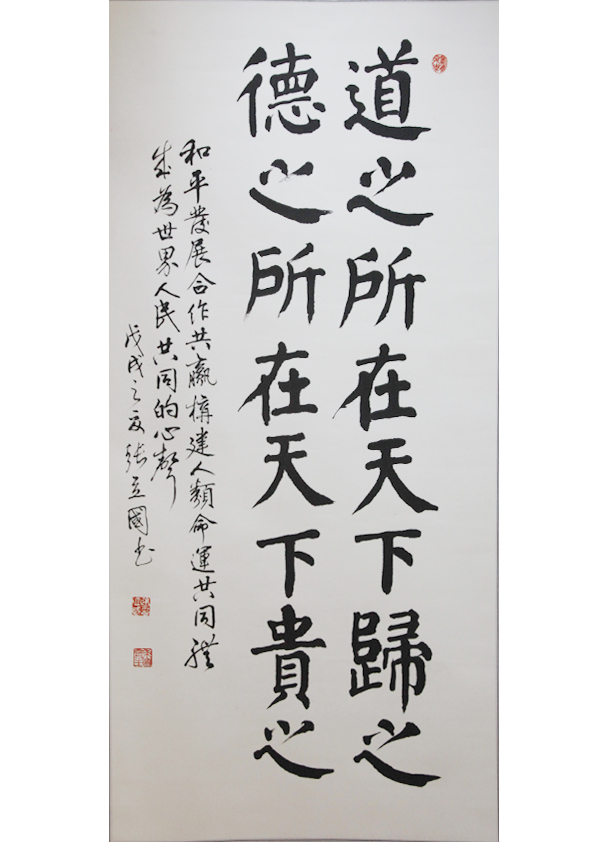 道之所在天下歸之
德之所在天下貴之
和平發展合作共贏構建人類命運共同體
成為世界人民共同的心聲
戊戌之夏張立國书